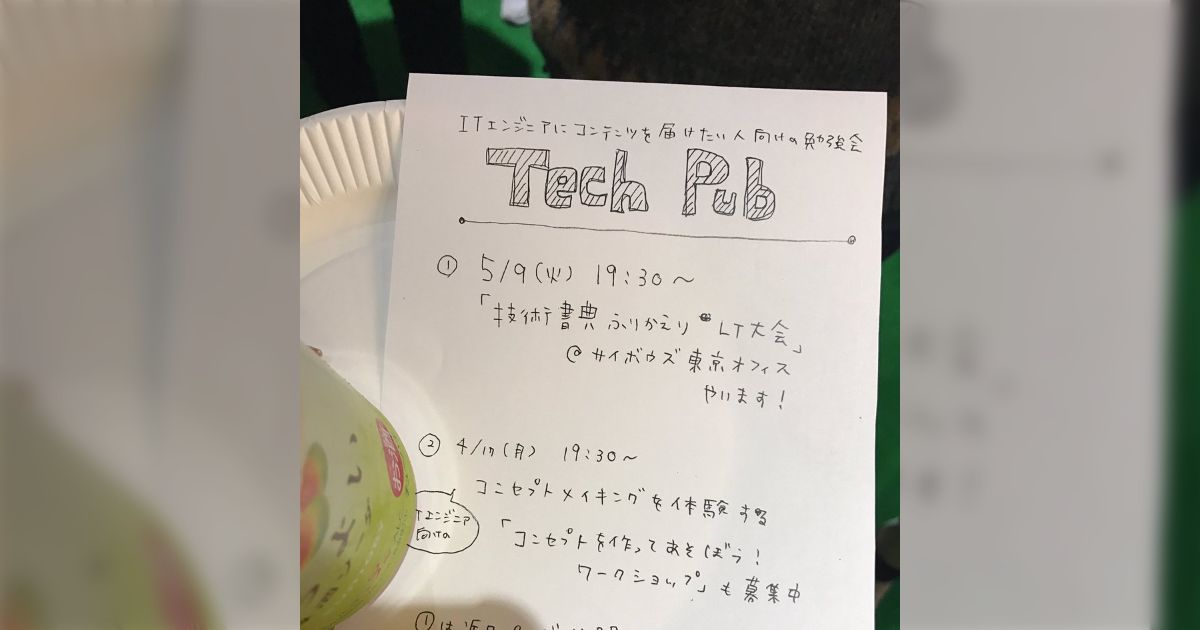 ITエンジニアにコンテンツを届けたい人向けの勉強会
Tech Pub
① 5/9(火) 19:30〜
「技術書典 ふりかえり LT大会」
@サイボウズ東京オフィス
やります!
② 4/17(月) 19:30〜
コンセプトメイキングを体験する
ITエンジニア
向けの
「コンセプトを作ってあそぼう!
ワークショップ」も募集中
①は